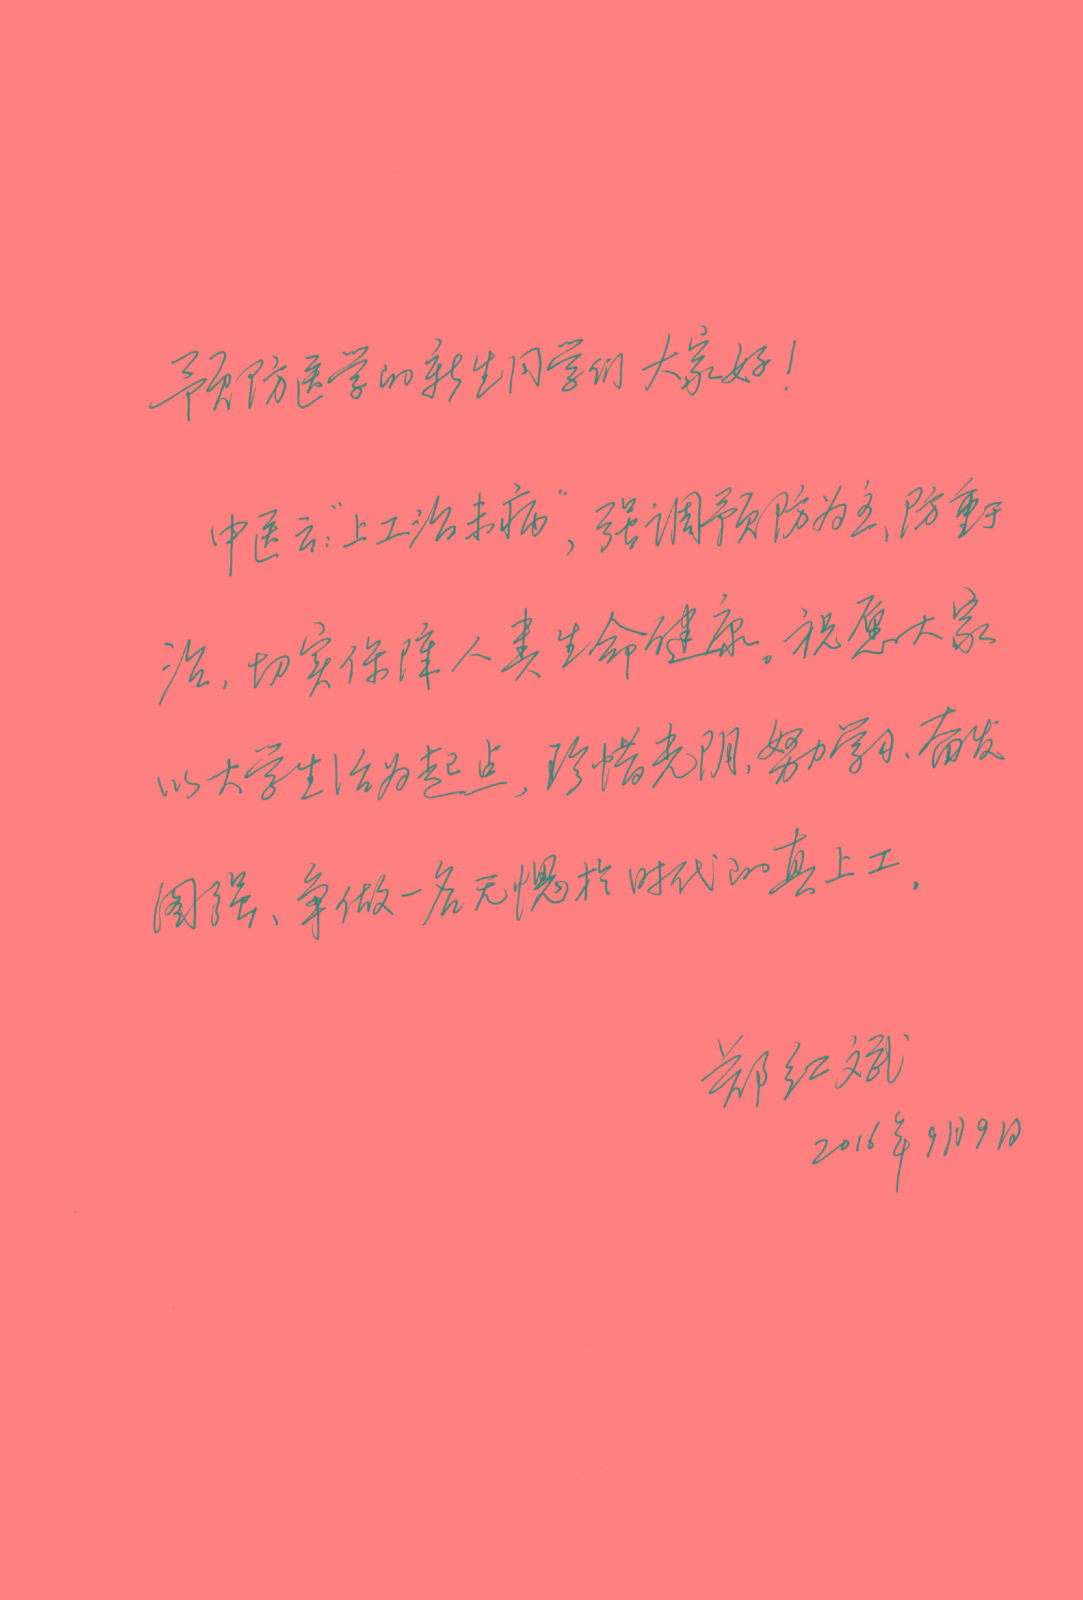 预防医学的新生同学们 大家好！
中医云:"上工治未病"，强调预防为主、防重于
治，切实保障人类生命健康。祝愿大家
以大学生活为起点，珍惜光阴、努力学习、奋发
图强、争做一名无愧于时代的真上工。
郑红斌
2016年9月9日